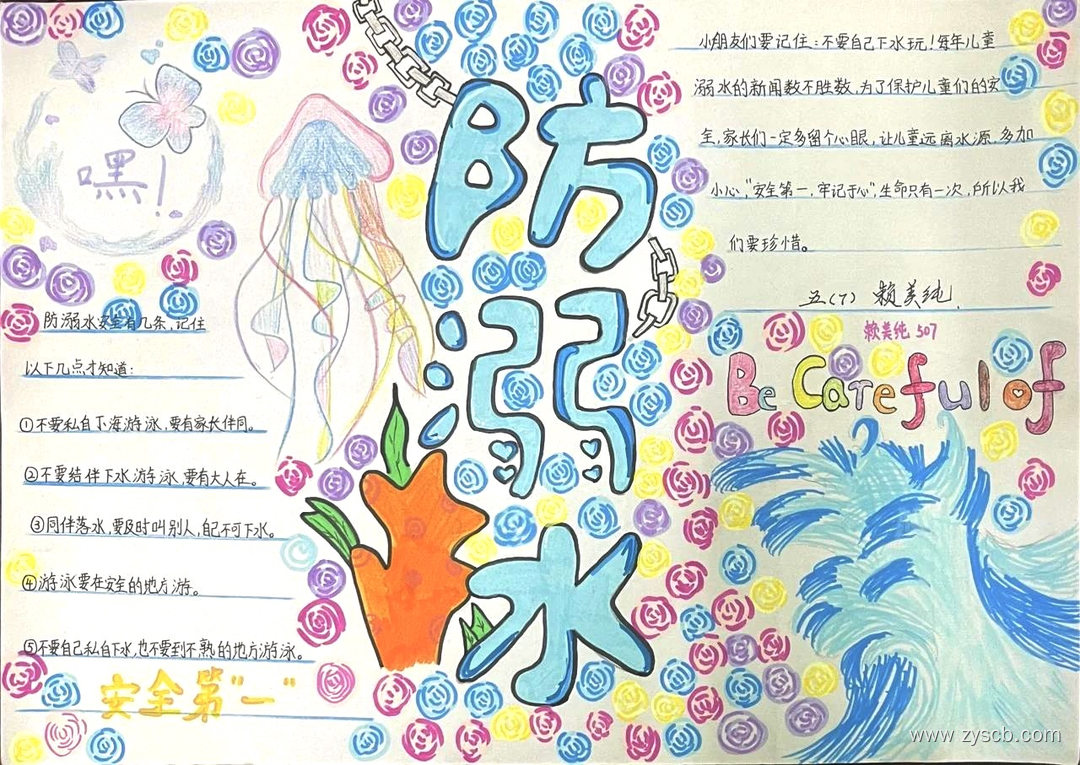 嘿!
防溺水
防溺水安全有几条,记住
以下几点才知道:
①不要私自下海游泳,要有家长伴同。
②不要结伴下水游泳,要有大人在。
③同伴落水,要及时叫别人,自己不可下水。
④游泳要在安全的地方游。
⑤不要自己私自下水,也不要到不熟的地方游泳。
安全第"一"
小朋友们要记住:不要自己下水玩!每年儿童
溺水的新闻数不胜数,为了保护儿童们的安
全,家长们一定多留个心眼,让儿童远离水源,多加
小心,"安全第一,牢记于心",生命只有一次,所以我
们要珍惜。
五(7) 赖美纯
赖美纯 507
Be Careful of
www.zyscb.com